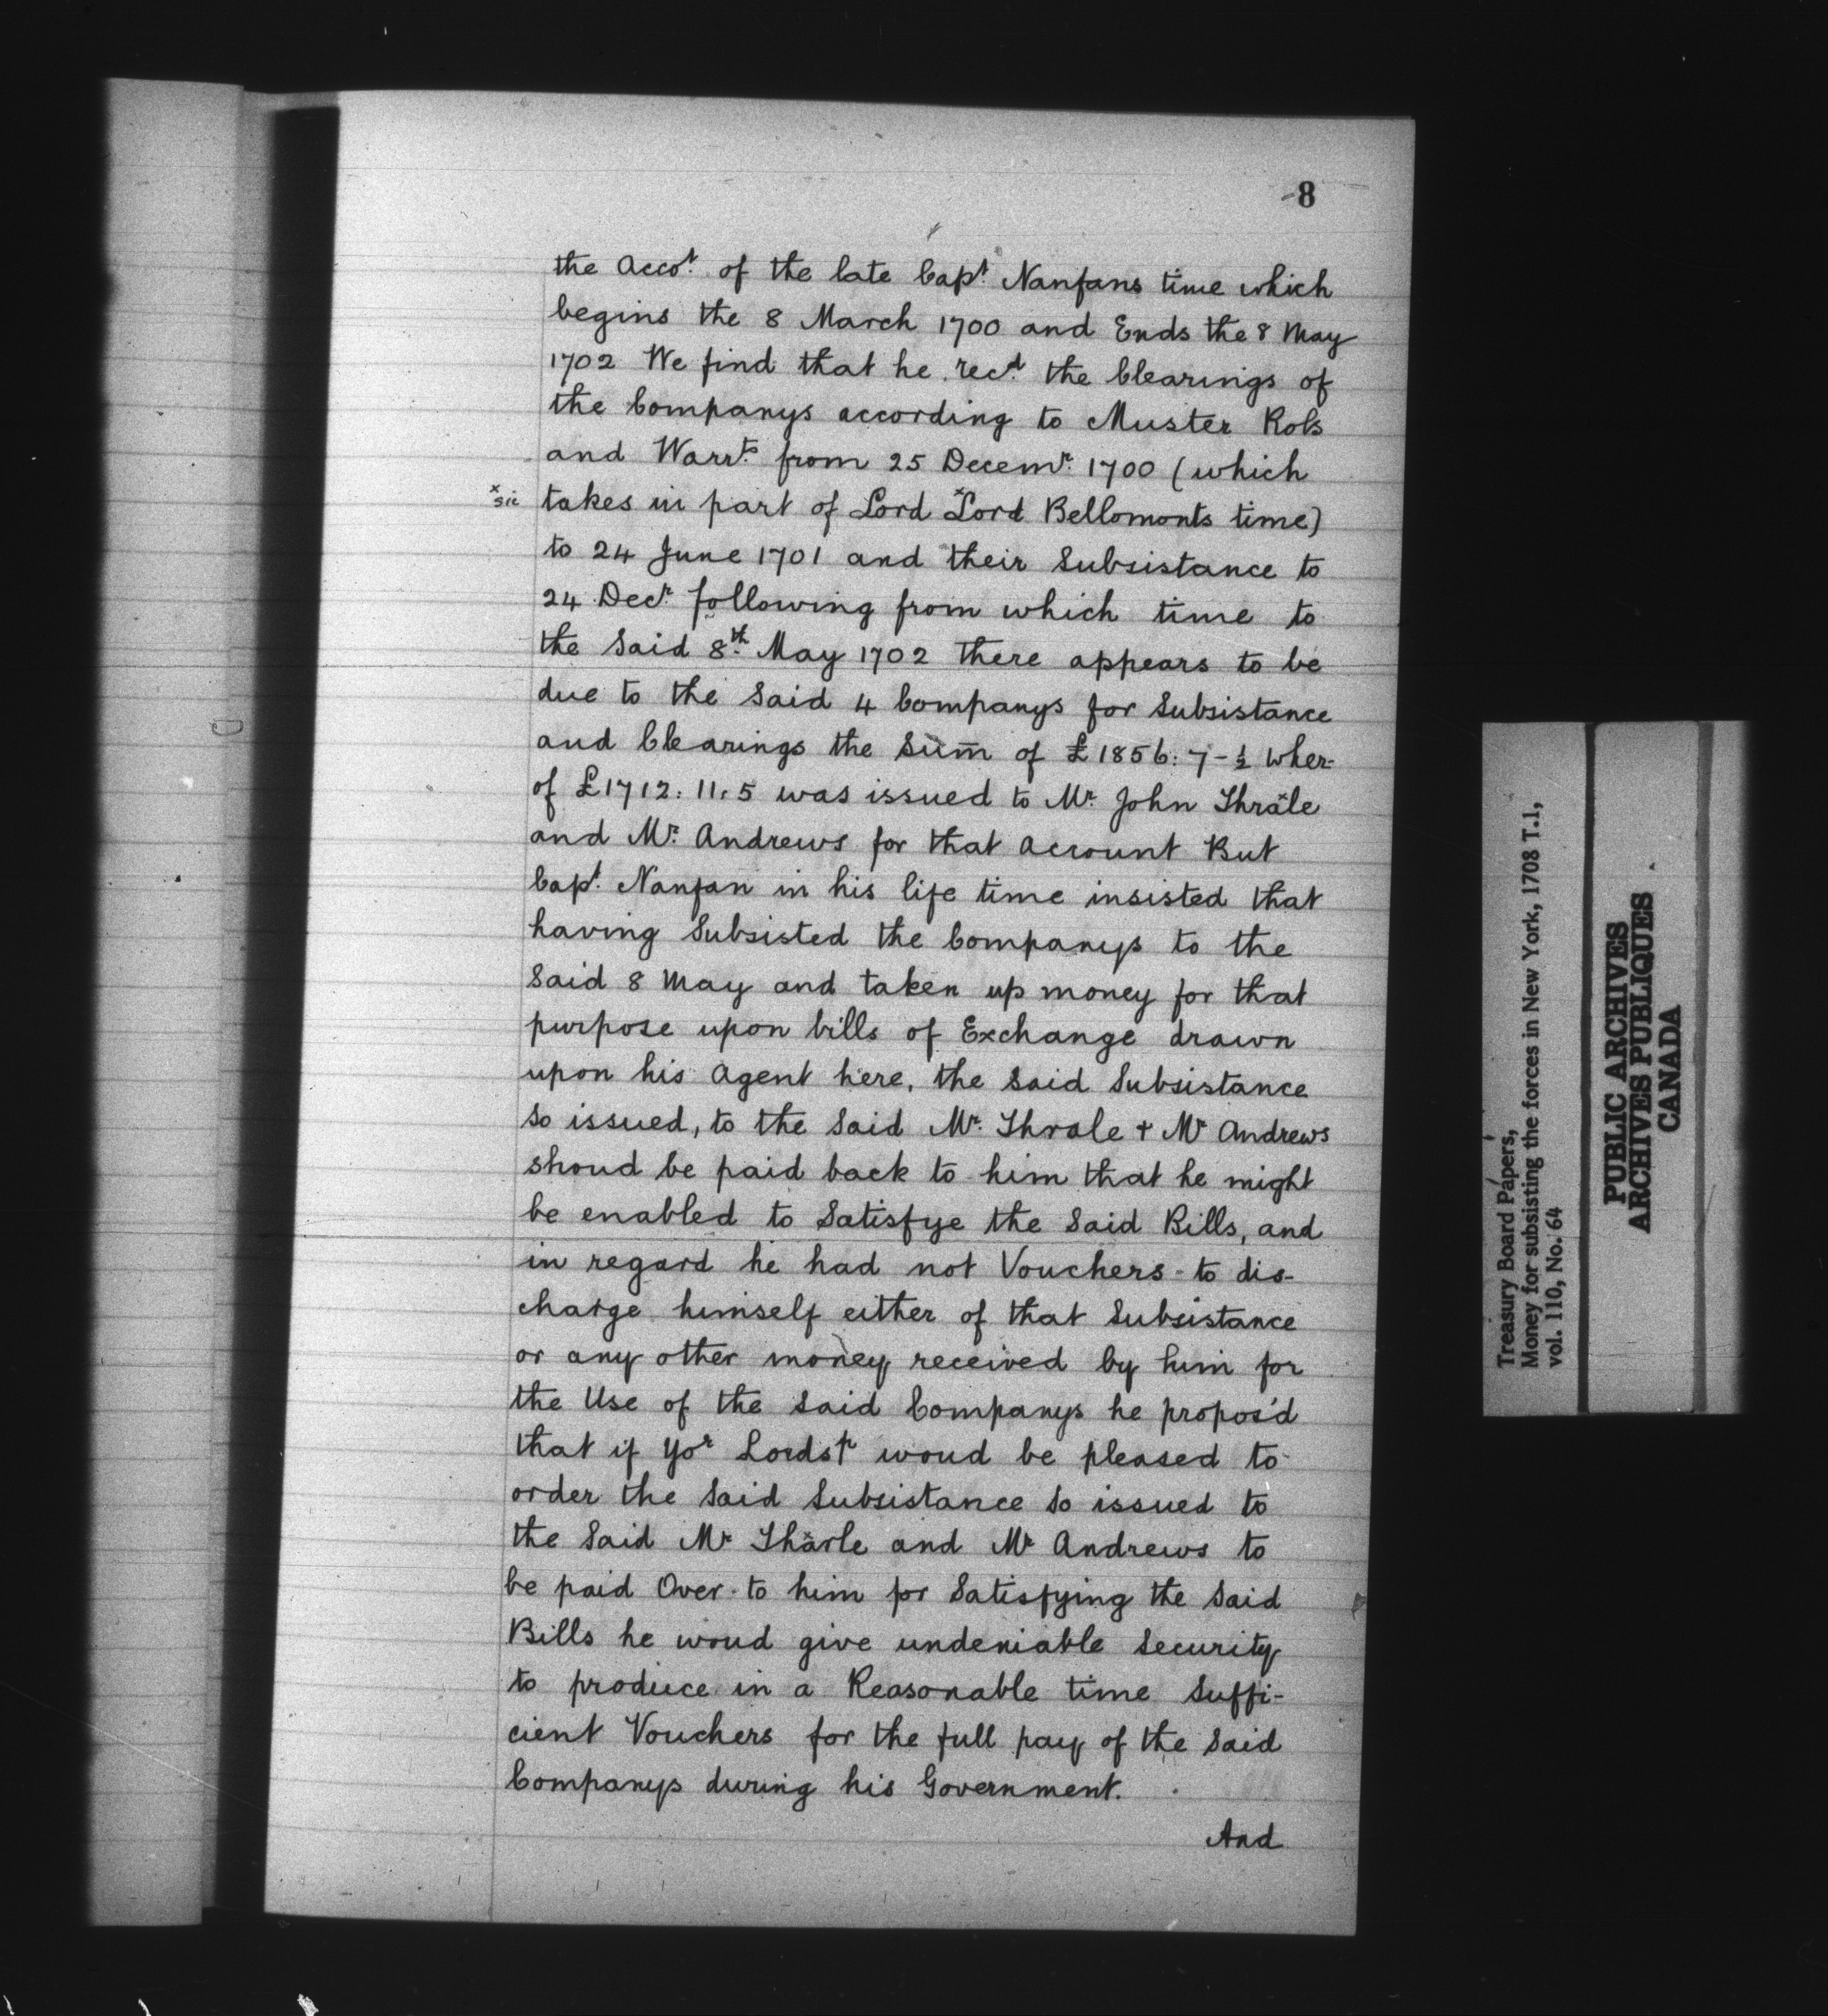 8
the Acco.t of the late Cap.t Nanfans time which
begins the 8 March 1700 and Ends the 8 May
1702 We find that he rec.d the Clearings of
the Companys according to Muster Rols
and Warr.ts from 25 Decem.r 1700 (which
x sic takes in part of Lord xLord Bellomonts time)
to 24 June 1701 and their Subsistance to
24 Dec.r following from which time to
the Said 8.th May 1702 there appears to be
due to the Said 4 Companys for Subsistance
and Clearings the Sum̄ of £1856: 7-½ wher-
of £1712. 11. 5 was issued to M.r John Thrale
and M.r Andrews for that Account But
Cap.t Nanfan in his life time insisted that
having Subsisted the Companys to the
Said 8 May and taken up money for that
purpose upon bills of Exchange drawn
upon his Agent here, the Said Subsistance
so issued, to the Said M.r Thrale + M.r Andrews
shoud be paid back to him that he might
be enabled to Satisfye the Said Bills, and
in regard he had not Vouchers to dis-
charge himself either of that Subsistance
or any other money received by him for
the Use of the Said Companys he propos'd
that if Yo.r Lordsp woud be pleased to
order the Said Subsistance so issued to
the Said Mr Tharle and Mr Andrews to
be paid Over to him for Satisfying the Said
Bills he woud give undeniable Security
to produce in a Reasonable time Suffi-
cient Vouchers for the full pay of the Said
Companys during his Government.
And
Treasury Board Papers,
Money for subsisting the forces in New York, 1708 T.1,
vol. 110, No. 64
PUBLIC ARCHIVES
ARCHIVES PUBLIQUES
CANADA